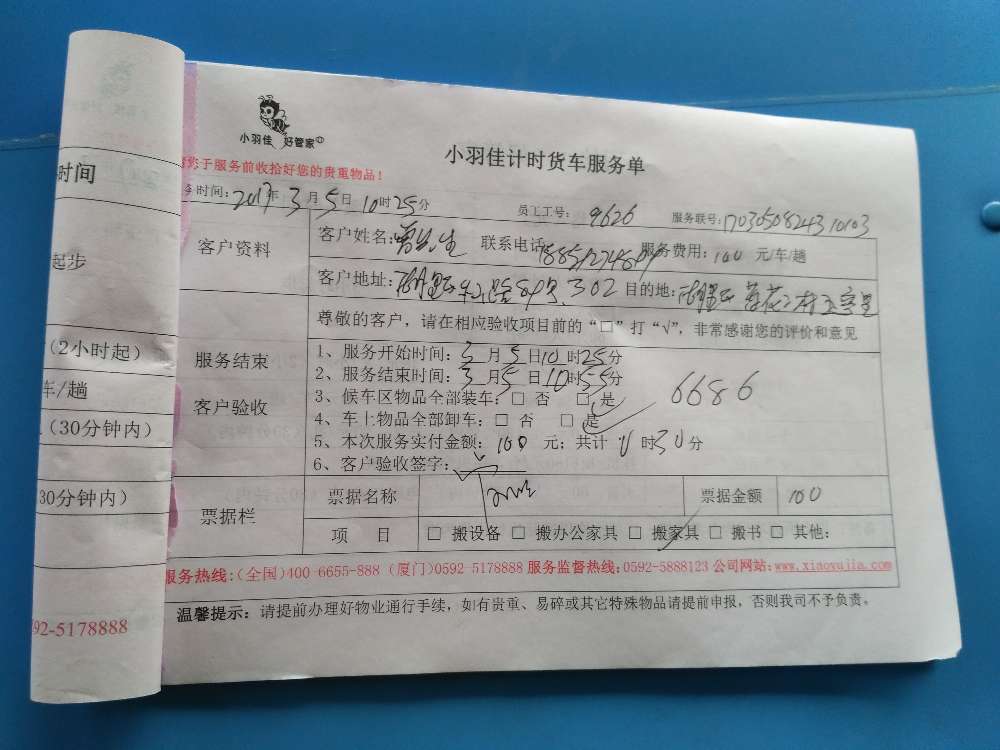 小羽佳 好管家
小羽佳计时货车服务单
您于服务前收拾好您的贵重物品！
时间：2017年3月5日10时25分 员工工号：9626 服务联号：1703050824310103
客户资料
客户姓名：曾先生 联系电话 服务费用：100元/车/趟
客户地址：302 目的地：
尊敬的客户，请在相应验收项目前的“□”打“√”，非常感谢您的评价和意见
服务结束
客户验收
1、服务开始时间：3月5日10时25分
2、服务结束时间：3月5日10时55分
3、候车区物品全部装车：□ 否 □ 是
6686
4、车上物品全部卸车：□ 否 □ 是
5、本次服务实付金额：100元；共计0时30分
6、客户验收签字：
票据栏
票据名称 票据金额 100
项 目 □ 搬设备 □ 搬办公家具 □ 搬家具 □ 搬书 □ 其他：
服务热线：(全国)400-6655-888 (厦门)0592 5178888 服务监督热线：0592-5888123 公司网站：www.xiaoyujia.com
温馨提示：请提前办理好物业通行手续，如有贵重、易碎或其它特殊物品请提前申报，否则我司不予负责。
时间
起步
（2小时起）
车/趟
（30分钟内）
30分钟内）
92-5178888